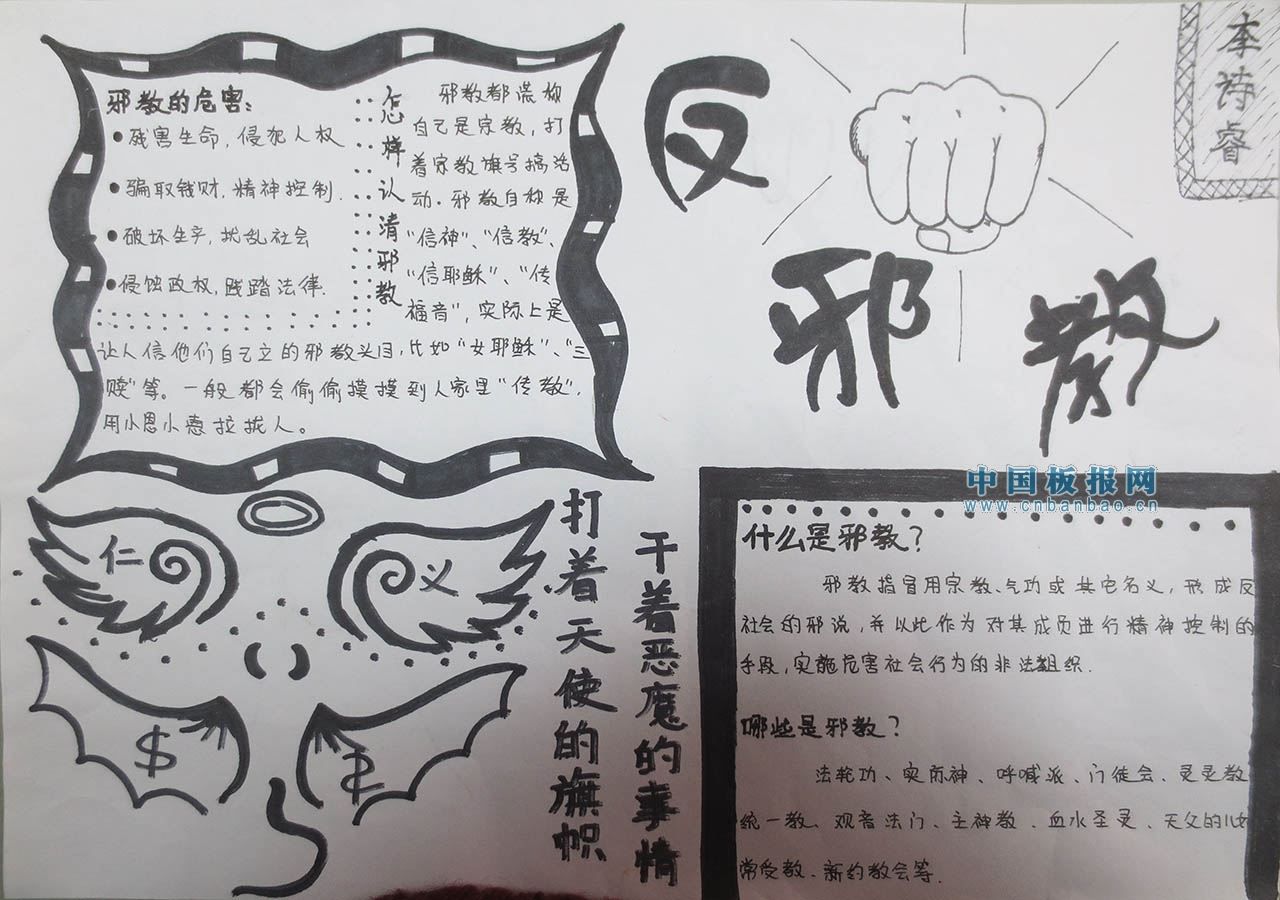 李诗睿
反
邪教
邪教的危害:
●残害生命,侵犯人权
●骗取钱财,精神控制.
●破坏生产,扰乱社会
●侵蚀政权,践踏法律.
怎样认清邪教
邪教都谎称
自己是宗教,打
着宗教旗号搞活
动.邪教自称是
“信神”、“信教”、
“信耶稣”、“传
福音”,实际上是
让人信他们自己立的邪教头目,比如“女耶稣”、“三
赎”等。一般都会偷偷摸摸到人家里“传教”,
用小恩小惠拉拢人。
仁
义
$
打着天使的旗帜
干着恶魔的事情
中国板报网
www.cnbanbao.cn
什么是邪教?
邪教指冒用宗教、气功或其它名义,形成反
社会的邪说,并以此作为对其成员进行精神控制的
手段,实施危害社会行为的非法组织.
哪些是邪教?
法轮功、实际神、呼喊派、门徒会、灵灵教
统一教、观音法门、主神教、血水圣灵、天父的儿女
常受教、新约教会等.